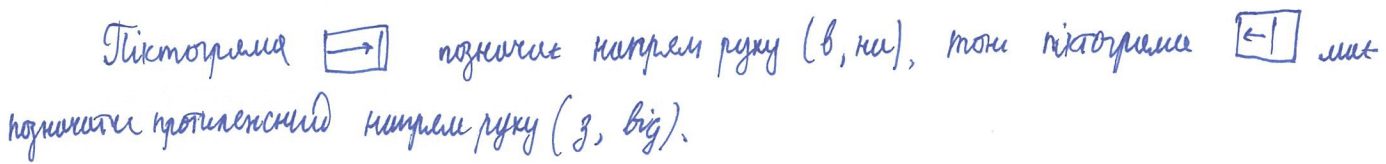 Піктограма позначає напрям руху (в, на), тоні піктограма має
позначати протилежний напрям руху (з, від).